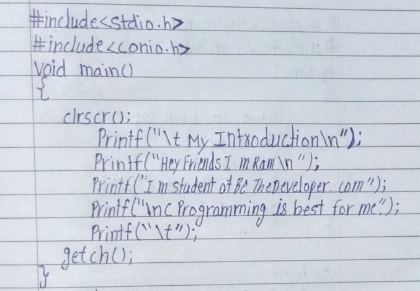 #include<stdio.h>
#include<conio.h>
void main()
{
clrscr();
Printf("\t My Introduction\n");
Printf("Hey Friends I m Ram\n");
Printf("I m student of Be TheDeveloper.com");
Printf("\nC Programming is best for me");
Printf("\t");
getch();
}